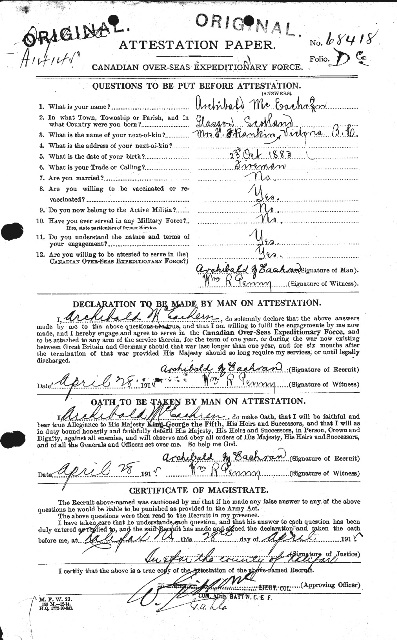 ORIGINAL.
ORIGINAL.
ATTESTATION PAPER.
No. 68418
Folio.
CANADIAN OVER-SEAS EXPEDITIONARY FORCE.
QUESTIONS TO BE PUT BEFORE ATTESTATION.
(ANSWERS)
1. What is your name? Archibald Mc Eachren
2. In what Town, Township or Parish, and in
what Country were you born? Glasgow Scotland
3. What is the name of your next-of-kin? Mrs Rankin, B.C.
4. What is the address of your next-of-kin?
5. What is the date of your birth? Oct 1883
6. What is your Trade or Calling? Fireman
7. Are you married? No.
8. Are you willing to be vaccinated or re-
vaccinated? Yes.
9. Do you now belong to the Active Militia? No.
10. Have you ever served in any Military Force? No.
If so, state particulars of former Service.
11. Do you understand the nature and terms of
your engagement? Yes.
12. Are you willing to be attested to serve in the
CANADIAN OVER-SEAS EXPEDITIONARY FORCE? Yes.
Archibald Mc Eachren (Signature of Man).
Wm R Penny (Signature of Witness).
DECLARATION TO BE MADE BY MAN ON ATTESTATION.
I, Archibald Mc Eachern, do solemnly declare that the above answers
made by me to the above questions are true, and that I am willing to fulfil the engagements by me now
made, and I hereby engage and agree to serve in the Canadian Over-Seas Expeditionary Force, and
to be attached to any arm of the service therein, for the term of one year, or during the war now existing
between Great Britain and Germany should that war last longer than one year, and for six months after
the termination of that war provided His Majesty should so long require my services, or until legally
discharged.
Archibald Mc Eachren (Signature of Recruit)
Date April 28 1915 Wm R Penny (Signature of Witness)
OATH TO BE TAKEN BY MAN ON ATTESTATION.
I, Archibald Mc Eachren, do make Oath, that I will be faithful and
bear true Allegiance to His Majesty King George the Fifth, His Heirs and Successors, and that I will as
in duty bound honestly and faithfully defend His Majesty, His Heirs and Successors, in Person, Crown and
Dignity, against all enemies, and will observe and obey all orders of His Majesty, His Heirs and Successors,
and of all the Generals and Officers set over me. So help me God.
Archibald Mc Eachren (Signature of Recruit)
Date April 28 1915 Wm R Penny (Signature of Witness)
CERTIFICATE OF MAGISTRATE.
The Recruit above-named was cautioned by me that if he made any false answer to any of the above
questions he would be liable to be punished as provided in the Army Act.
The above questions were then read to the Recruit in my presence.
I have taken care that he understands each question, and that his answer to each question has been
duly entered as replied to, and the said Recruit has made and signed the declaration and taken the oath
before me, at Halifax NS this 28th day of April 1915
for the county of Halifax (Signature of Justice)
I certify that the above is a true copy of the Attestation of the above-named Recruit.
(Approving Officer)
LIEUT. COL.
C. E. F.
M. F. W. 23.